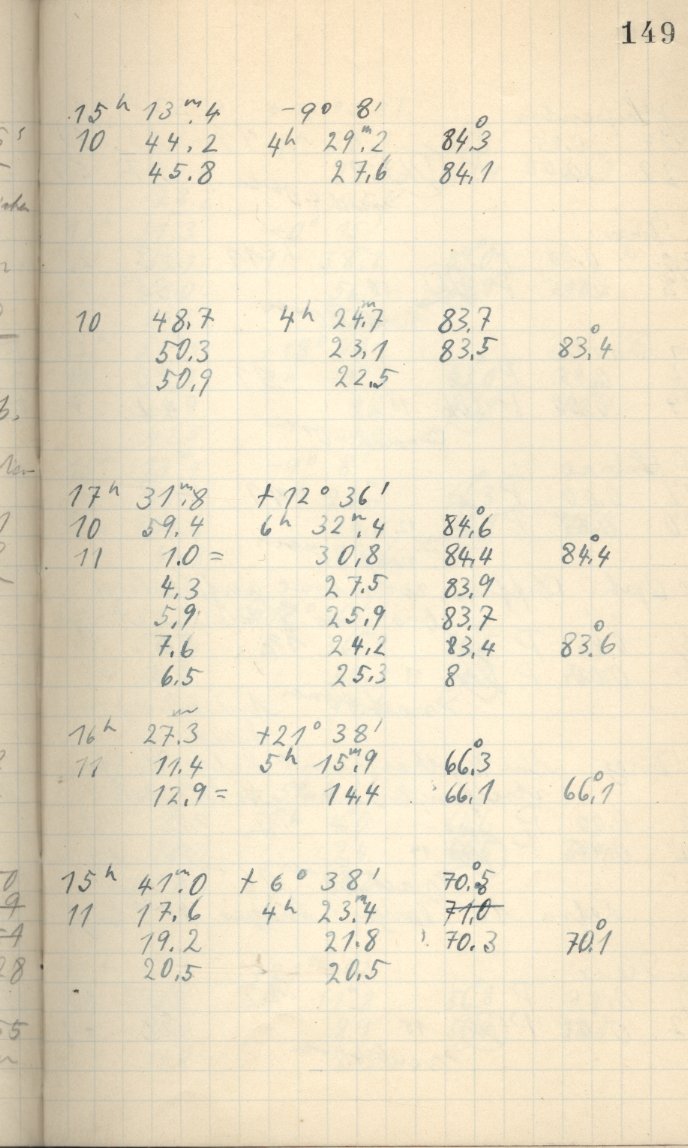 149
15ʰ 13ᵐ.4 -9° 8'
10 44.2 4ʰ 29ᵐ.2 84°.3
45.8 27,6 84,1
10 48,7 4ʰ 24ᵐ.7 83,7
50,3 23,1 83,5 83°,4
50,9 22,5
17ʰ 31ᵐ.8 +12° 36'
10 59.4 6ʰ 32ᵐ.4 84°,6
11 1.0 = 30,8 84,4 84°,4
4,3 27.5 83,9
5,9 25,9 83,7
7,6 24,2 83,4 83°.6
6.5 25,3 8
16ʰ 27ᵐ.3 +21° 38'
11 11.4 5ʰ 15ᵐ.9 66°,3
12,9 = 14,4 66,1 66°,1
15ʰ 41ᵐ.0 + 6° 38' 70°.5
11 17.6 4ʰ 23ᵐ.4 71,0
19.2 21.8 70.3 70°.1
20,5 20,5